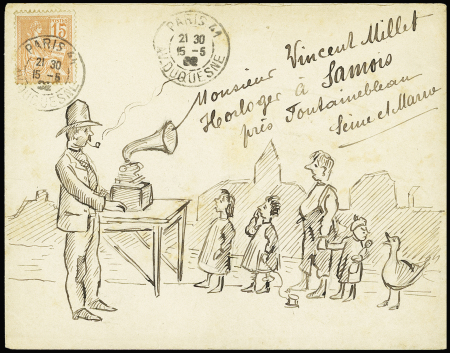 15
PARIS 44
21 30
15 -5
02
PARIS 44
21 30
15 -5
02
AV. DUQUESNE
Monsieur Vincent Millet
Horloger à Samois
près Fontainebleau
Seine et Marne